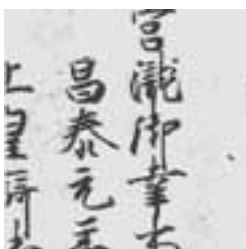 宮瀧御幸
昌泰元年
上皇